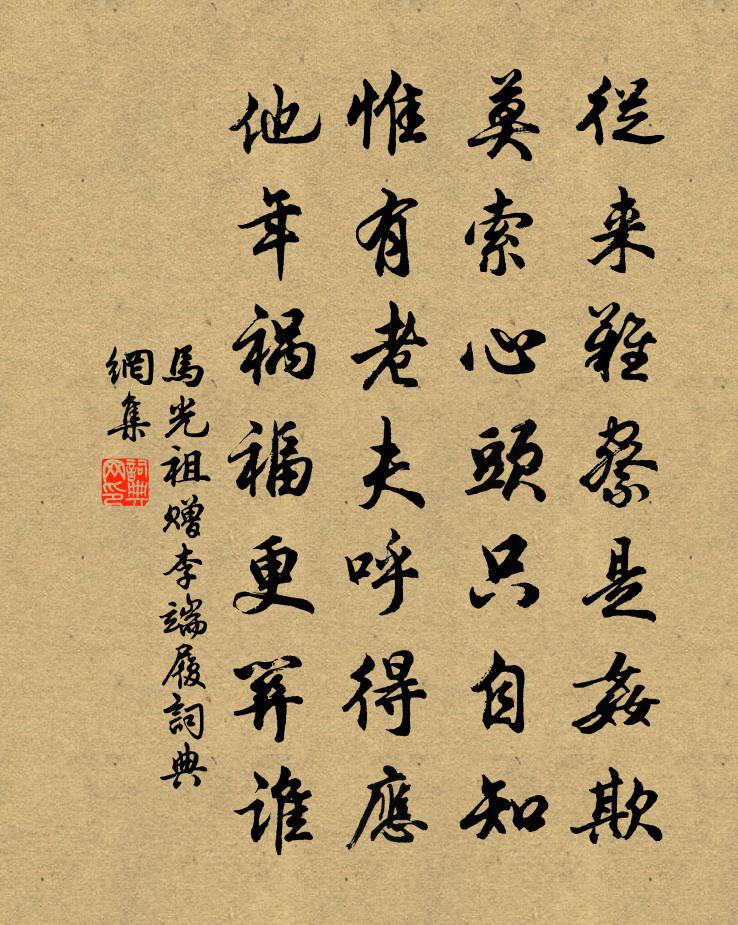 從来難察是姦欺
莫索心頭只自知
惟有老夫呼得應
他年禍福更筭誰
馬光祖贈李端履詞典
網集
詞典
网印